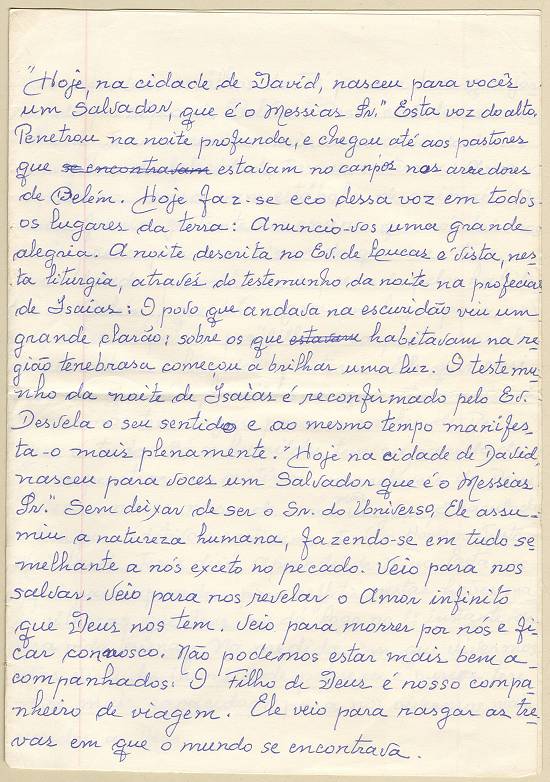 "Hoje, na cidade de David, nasceu para vocês
um Salvador, que é o Messias Sr." Esta voz do alto,
Penetrou na noite profunda, e chegou até aos pastores
que se encontravam estavam no campos nos arredores
de Belém. Hoje faz-se eco dessa voz em todos
os lugares da terra: Anuncio-vos uma grande
alegria. A noite descrita no Ev. de Lucas é vista, nes-
ta liturgia, através do testemunho da noite na profecia
de Isaias: O povo que andava na escuridão viu um
grande clarão; sobre os que estavam habitavam na re-
gião tenebrasa começou a brilhar uma luz. O testemu-
nho da noite de Isaias é reconfirmado pelo Ev.
Desvela o seu sentido e ao mesmo tempo manifes
ta-o mais plenamente. "Hoje na cidade de David,
nasceu para voces um Salvador que é o Messias
Sr." Sem deixar de ser o Sr. do Universo, Ele assu-
miu a natureza humana, fazendo-se em tudo se
melhante a nós exceto no pecado. Veio para nos
salvar. Veio para nos revelar o Amor infinito
que Deus nos tem. Veio para morrer por nós e fi-
car connosco. Não podemos estar mais bem a-
companhados: O Filho de Deus é nosso compa-
nheiro de viagem. Ele veio para rasgar as tre-
vas em que o mundo se encontrava.